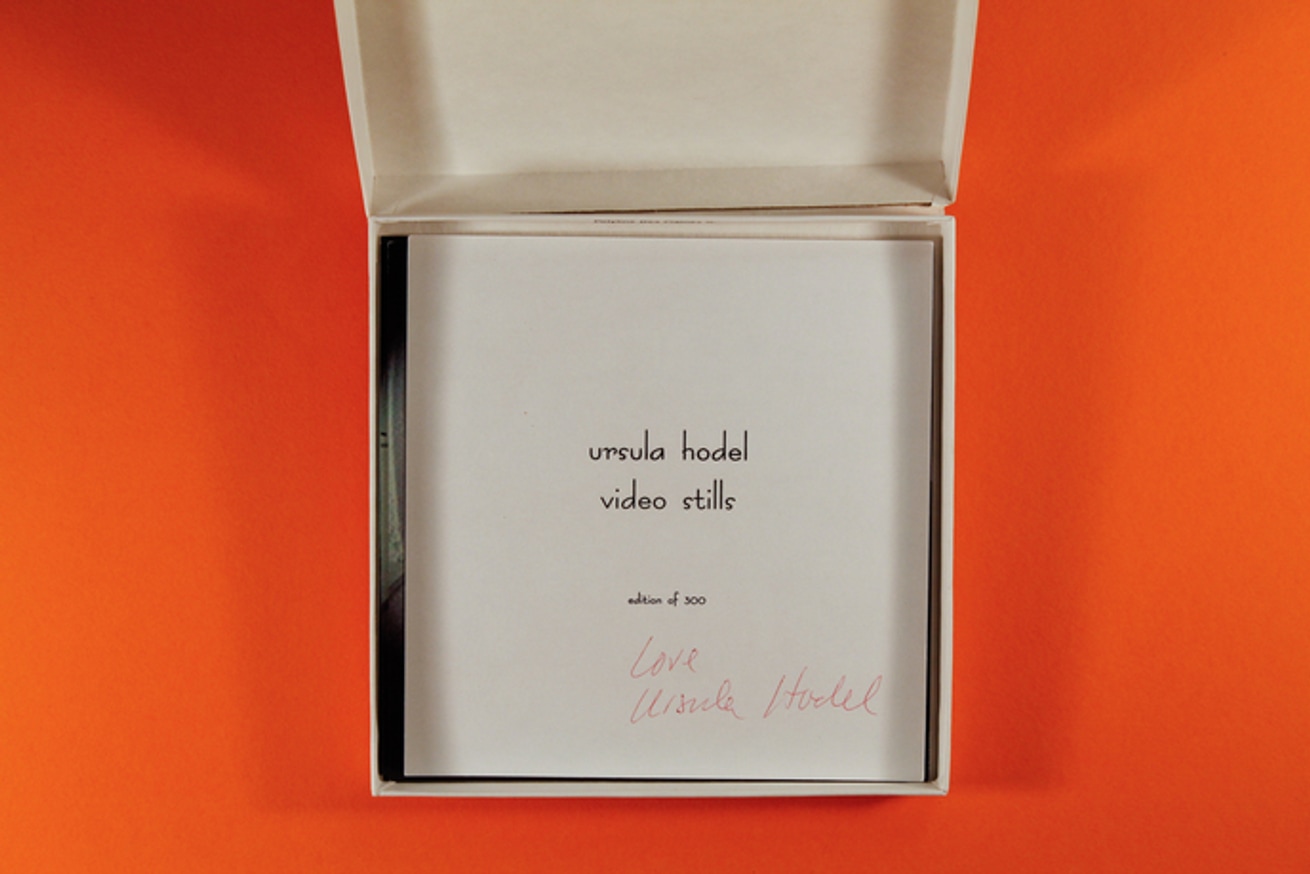 ursula hodel
video stills
edition of 300
Love
Ursula Hodel